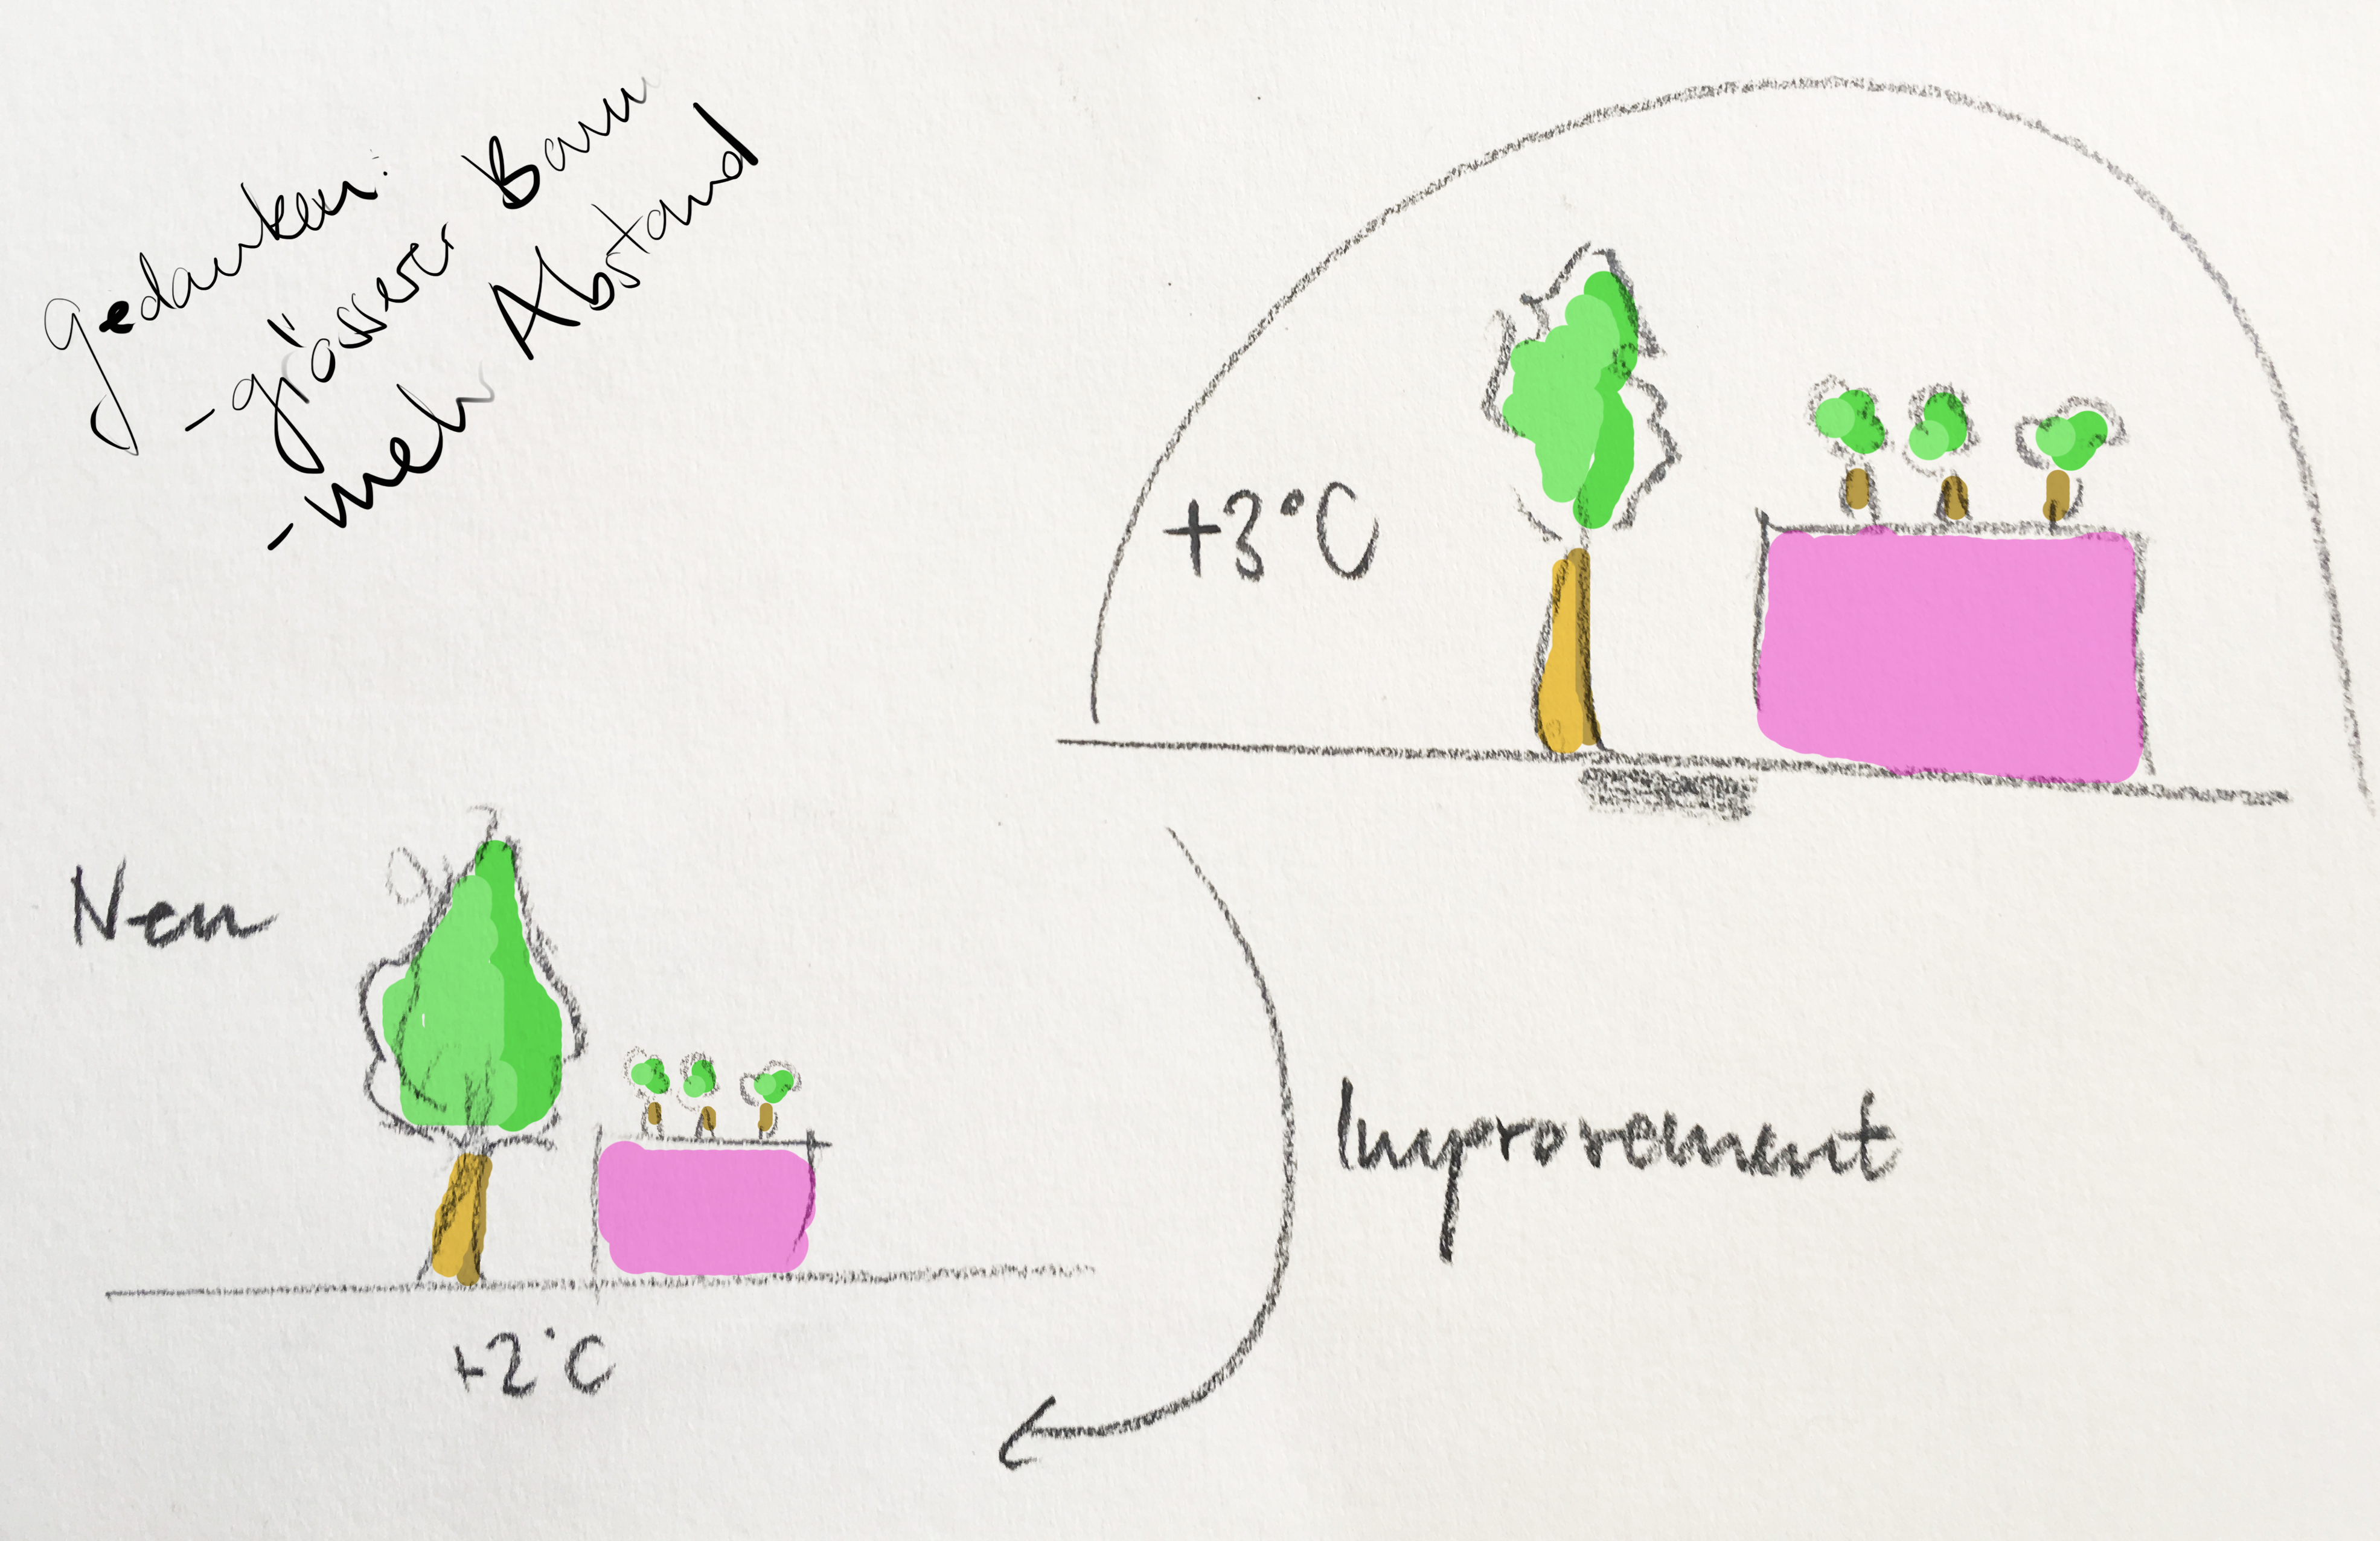 Gedanken:
- grösserer Baum
- mehr Abstand
+3°C
Neu
Improvement
+2°C